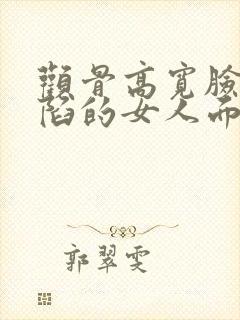 顴骨高寬臉
陷的女人面
郭翠雯